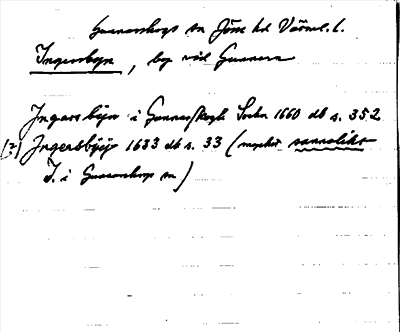 Gunnarskogs sn Jösse hd Värml. l.
Ingersbyn, by vid Gunnern
Ingersbÿn i Gunnerskogh Sochn 1660 db s. 352
(?) Ingersbÿÿ 1633 db s. 33 (mycket sannolikt
I. i Gunnarskogs sn)